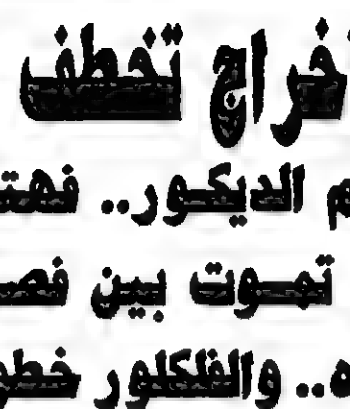 فراج تخطف
م الديكور.. فهتـ
تموت بين فصـ
ه.. والفلكلور خطو